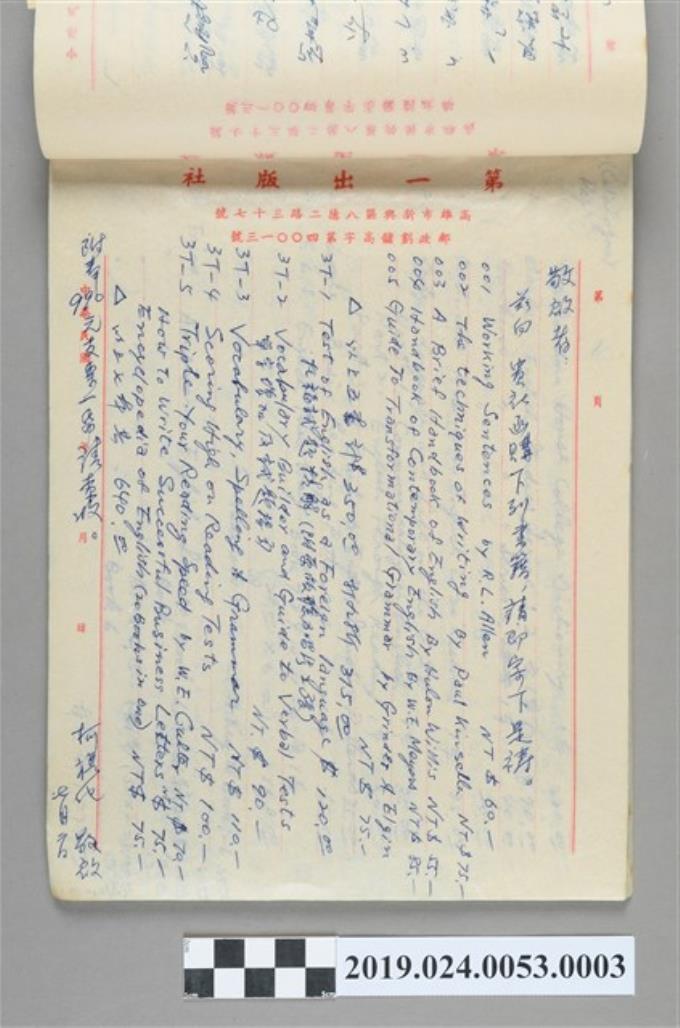 第一出版社
高雄市新興區八德二路三十七號
郵政劃儲高字第四〇〇一三號
第 頁
敬啟者:
茲向 貴社函購下列書籍，請即寄下是禱。
001 Working Sentences by R.L. Allen NT$ 60.—
002 The techniques of Writing By Paul Kinsella NT$ 75.—
003 A Brief Handbook of English By Hulon Willis NT$ 55.—
004 Handbook of Contemporary English By W.E. Meyers NT$ 85.—
005 Guide To Transformational Grammar by Grinder & Elgin
NT$ 75.—
△ 以上五書 計$350.00 折扣 315.00
3T-1 Test of English as a Foreign language $ 120.00
3T-2 Vocabulary Builder and Guide to Verbal Tests
NT.$ 90.—
3T-3 Vocabulary, Spelling & Grammar NT$ 110.—
3T-4 Scoring High on Reading Tests NT$ 100.—
3T-5 Triple Your Reading Speed by W.E. Cutler NT.$ 70—
How to Write Successful Business Letters N$ 75.—
Encyclopedia of English (20 Books in one) NT$ 75.—
△ 以上 640.
附寄 990元支票一張請查收。
月 日
柯旗化 敬啟
2019.024.0053.0003